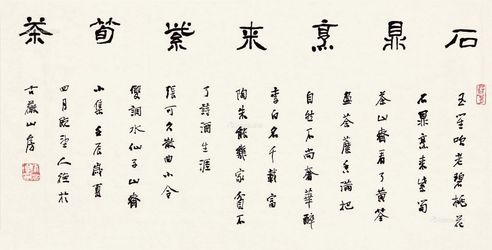 石鼎烹来紫筍茶
玉笙吹老碧桃花
石鼎烹来紫筍
茶山齋看了黄筌
畫荼蘼香滿把
自然不尚奢華醉
李白名千載富
陶朱能幾家貧不
了詩酒生涯
張可久散曲小令
雙調水仙子山齋
小集壬辰歲夏
四月望人於
古巖山房